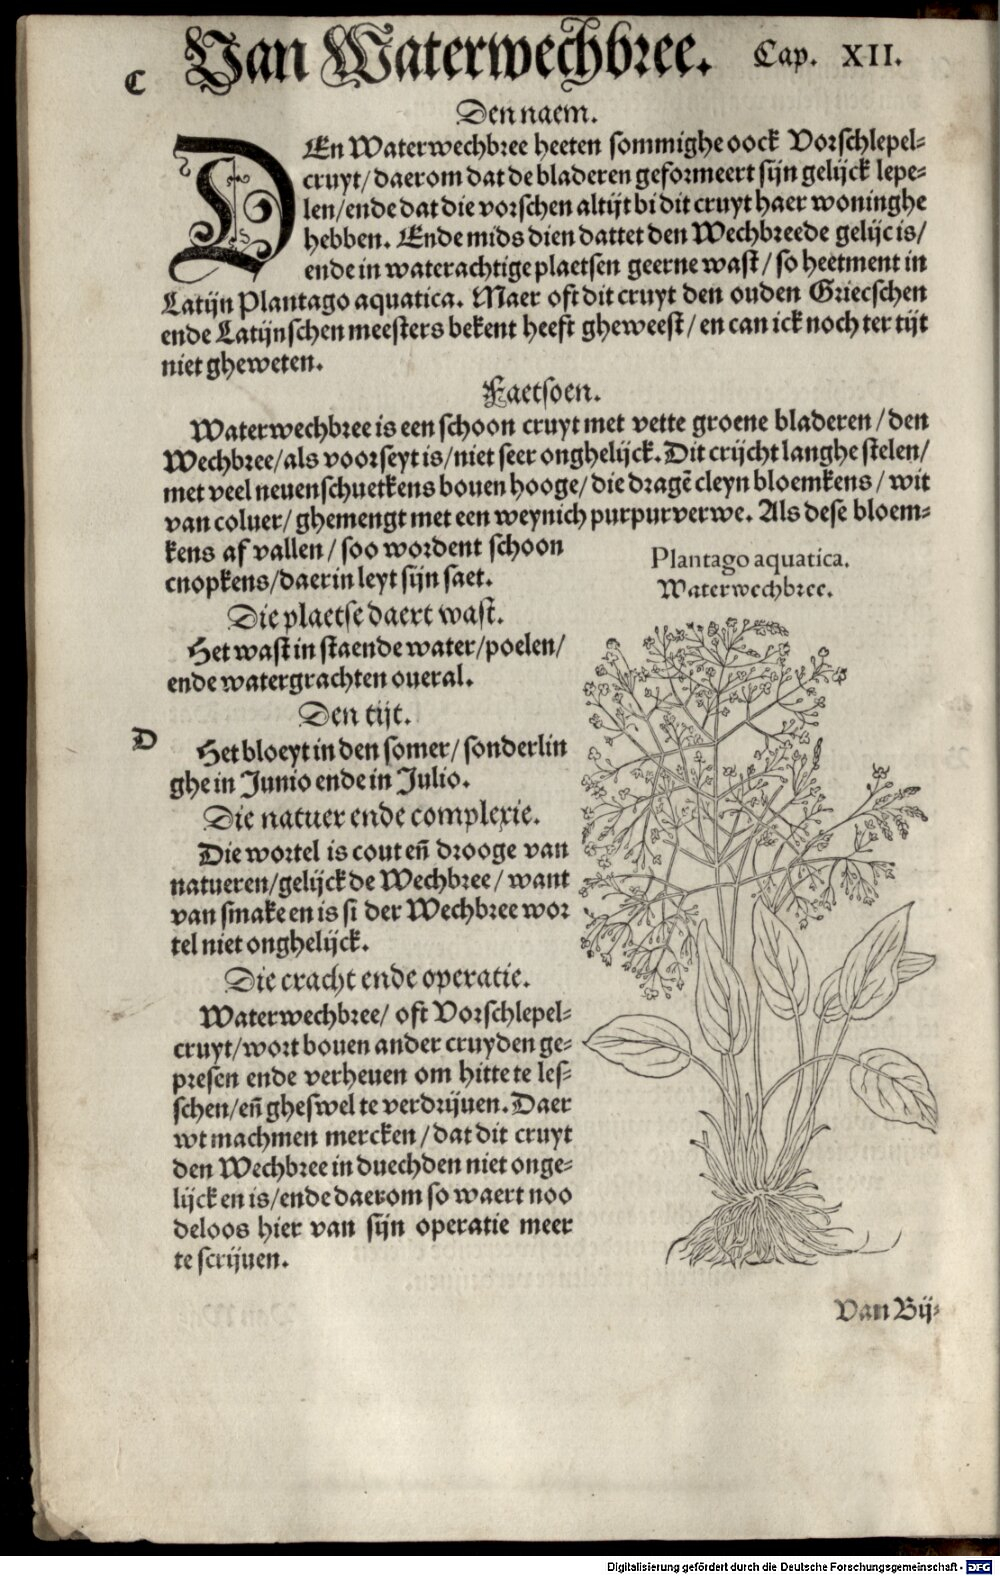 C
Van Waterwechbree. Cap. XII.
Den naem.
DEn Waterwechbree heeten sommighe oock Vorschlepel-
cruyt/ daerom dat de bladeren geformeert sijn gelijck lepe-
len/ende dat die vorschen altijt bi dit cruyt haer woninghe
hebben. Ende mids dien dattet den Wechbreede gelijc is/
ende in waterachtige plaetsen geerne wast/ so heetment in
Latijn Plantago aquatica. Maer oft dit cruyt den ouden Griecschen
ende Latijnschen meesters bekent heeft gheweest/ en can ick noch ter tijt
niet gheweten.
Faetsoen.
Waterwechbree is een schoon cruyt met vette groene bladeren/ den
Wechbree/als voorseyt is/niet seer onghelijck. Dit crijcht langhe stelen/
met veel neuenschuetkens bouen hooge/ die dragē cleyn bloemkens/ wit
van coluer/ ghemengt met een weynich purpurverwe. Als dese bloem-
kens af vallen/ soo wordent schoon
cnopkens/daerin leyt sijn saet.
Plantago aquatica.
Waterwechbree.
Die plaetse daert wast.
Het wast in staende water/poelen/
ende watergrachten oueral.
Den tijt.
D
Het bloeyt in den somer/ sonderlin
ghe in Junio ende in Julio.
Die natuer ende complexie.
Die wortel is cout eñ drooge van
natueren/gelijck de Wechbree/ want
van smake en is si der Wechbree wor
tel niet onghelijck.
Die cracht ende operatie.
Waterwechbree/ oft Vorschlepel-
cruyt/wort bouen ander cruyden ge-
presen ende verheuen om hitte te les-
schen/eñ gheswel te verdrijuen. Daer
wt machmen mercken/ dat dit cruyt
den Wechbree in duechden niet onge-
lijck en is/ende daerom so waert noo
deloos hier van sijn operatie meer
te scrijuen.
Van Bij-
Digitalisierung gefördert durch die Deutsche Forschungsgemeinschaft - DFG